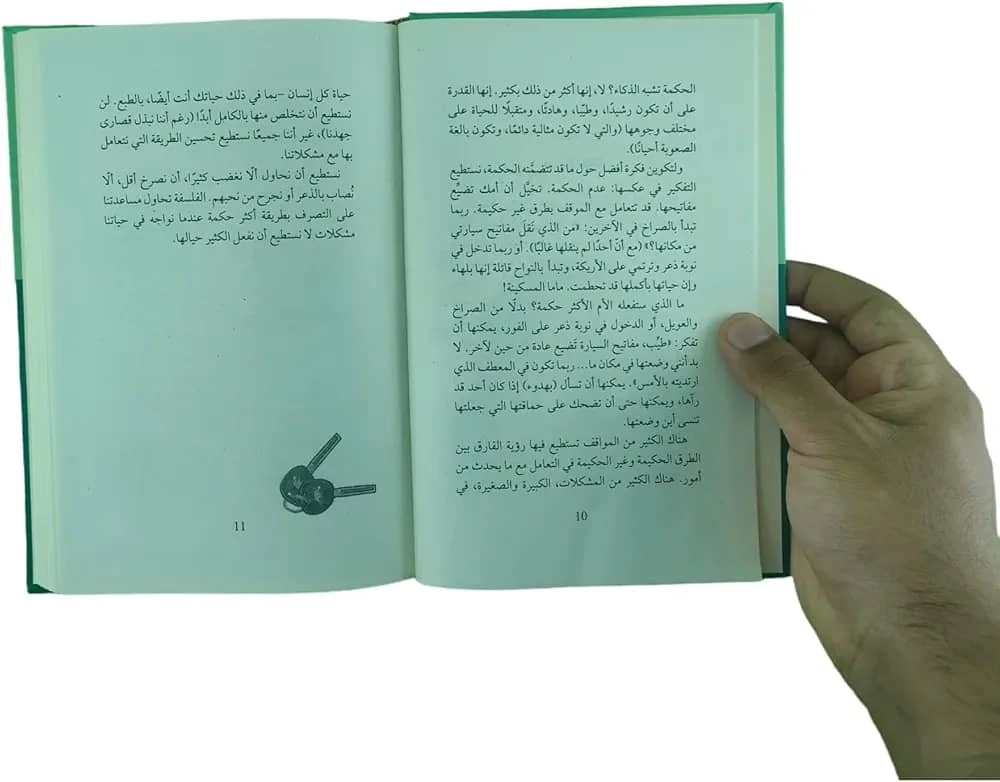 الحكمة تشبه الذكاء؟ لا، إنها أكثر من ذلك بكثير. إنها القدرة
على أن تكون رشيدًا، وطيبًا، وهادئًا، ومتقبلًا للحياة على
مختلف وجوهها (والتي لا تكون مثالية دائمًا، وتكون بالغة
الصعوبة أحيانًا).
ولتكوين فكرة أفضل حول ما قد تتضمَّنته الحكمة، نستطيع
التفكير في عكسها: عدم الحكمة. تخيَّل أن أمك تضيِّع
مفاتيحها. قد تتعامل مع الموقف بطرق غير حكيمة. ربما
تبدأ بالصراخ في الآخرين: «من الذي نَقلَ مفاتيح سيارتي
من مكانها؟» (مع أنّ أحدًا لم ينقلها غالبًا). أو ربما تدخل في
نوبة ذعر وترتمي على الأريكة، وتبدأ بالنواح قائلة إنها بلهاء
وإن حياتها بأكملها قد تحطمت. ماما المسكينة!
ما الذي ستفعله الأم الأكثر حكمة؟ بدلًا من الصراخ
والعويل، أو الدخول في نوبة ذعر على الفور، يمكنها أن
تفكر: «طيِّب، مفاتيح السيارة تَضيع عادة من حين لآخر. لا
بد أنني وضعتها في مكان ما... ربما تكون في المعطف الذي
ارتديته بالأمس». يمكنها أن تسأل (بهدوء) إذا كان أحد قد
رآها، ويمكنها حتى أن تضحك على حماقتها التي جعلتها
تنسى أين وضعتها.
هناك الكثير من المواقف تستطيع فيها رؤية الفارق بين
الطرق الحكيمة وغير الحكيمة في التعامل مع ما يحدث من
أمور. هناك الكثير من المشكلات، الكبيرة والصغيرة، في
10
حياة كل إنسان –بما في ذلك حياتك أنت أيضًا، بالطبع. لن
نستطيع أن نتخلص منها بالكامل أبدًا (رغم أننا نبذل قصارى
جهدنا)، غير أننا جميعًا نستطيع تحسين الطريقة التي نتعامل
بها مع مشكلاتنا.
نستطيع أن نحاول ألّا نغضب كثيرًا، أن نصرخ أقل، ألّا
نُصاب بالذعر أو نجرح من نحبهم. الفلسفة تحاول مساعدتنا
على التصرف بطريقة أكثر حكمة عندما نواجه في حياتنا
مشكلات لا نستطيع أن نفعل الكثير حيالها.
11